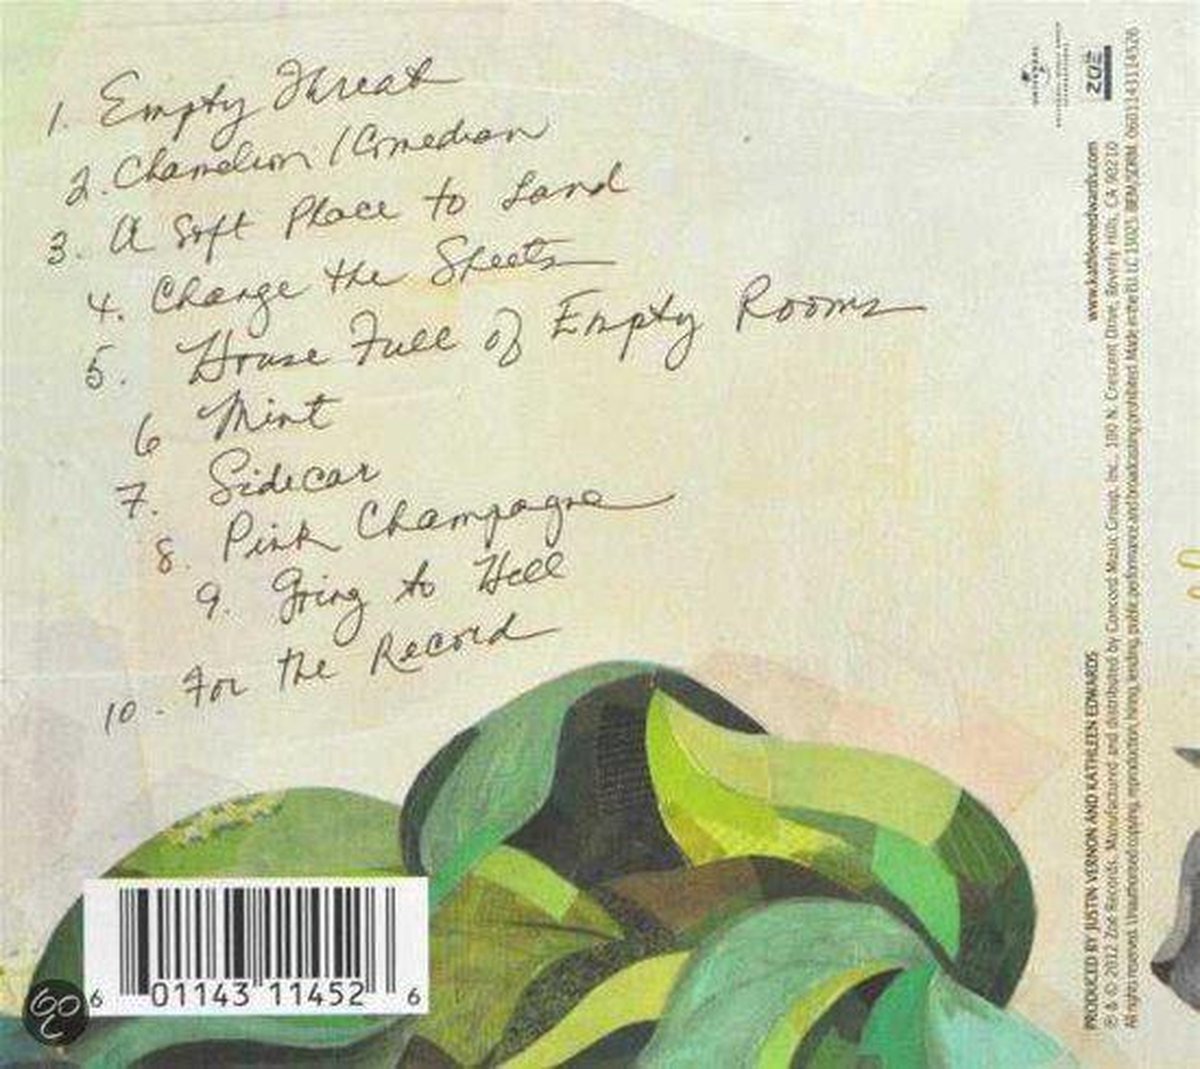 1. Empty Threat
2. Chamelion / Comedian
3. A Soft Place to Land
4. Change the Sheets
5. House Full of Empty Rooms
6 Mint
7. Sidecar
8. Pink Champagne
9. Going to Hell
10. For the Record
6 01143 11452 6
PRODUCED BY JUSTIN VERNON AND KATHLEEN EDWARDS
www.kathleenedwards.com
℗ & © 2012 Zoë Records. Manufactured and distributed by Concord Music Group, Inc., 100 N. Crescent Drive, Beverly Hills, CA 90210
All rights reserved. Unauthorized copying, reproduction, hiring, lending, public performance and broadcasting prohibited. Made in the EU. LC 11025. BIEM/SDRM. 0601143114526
UNIVERSAL
ZOË